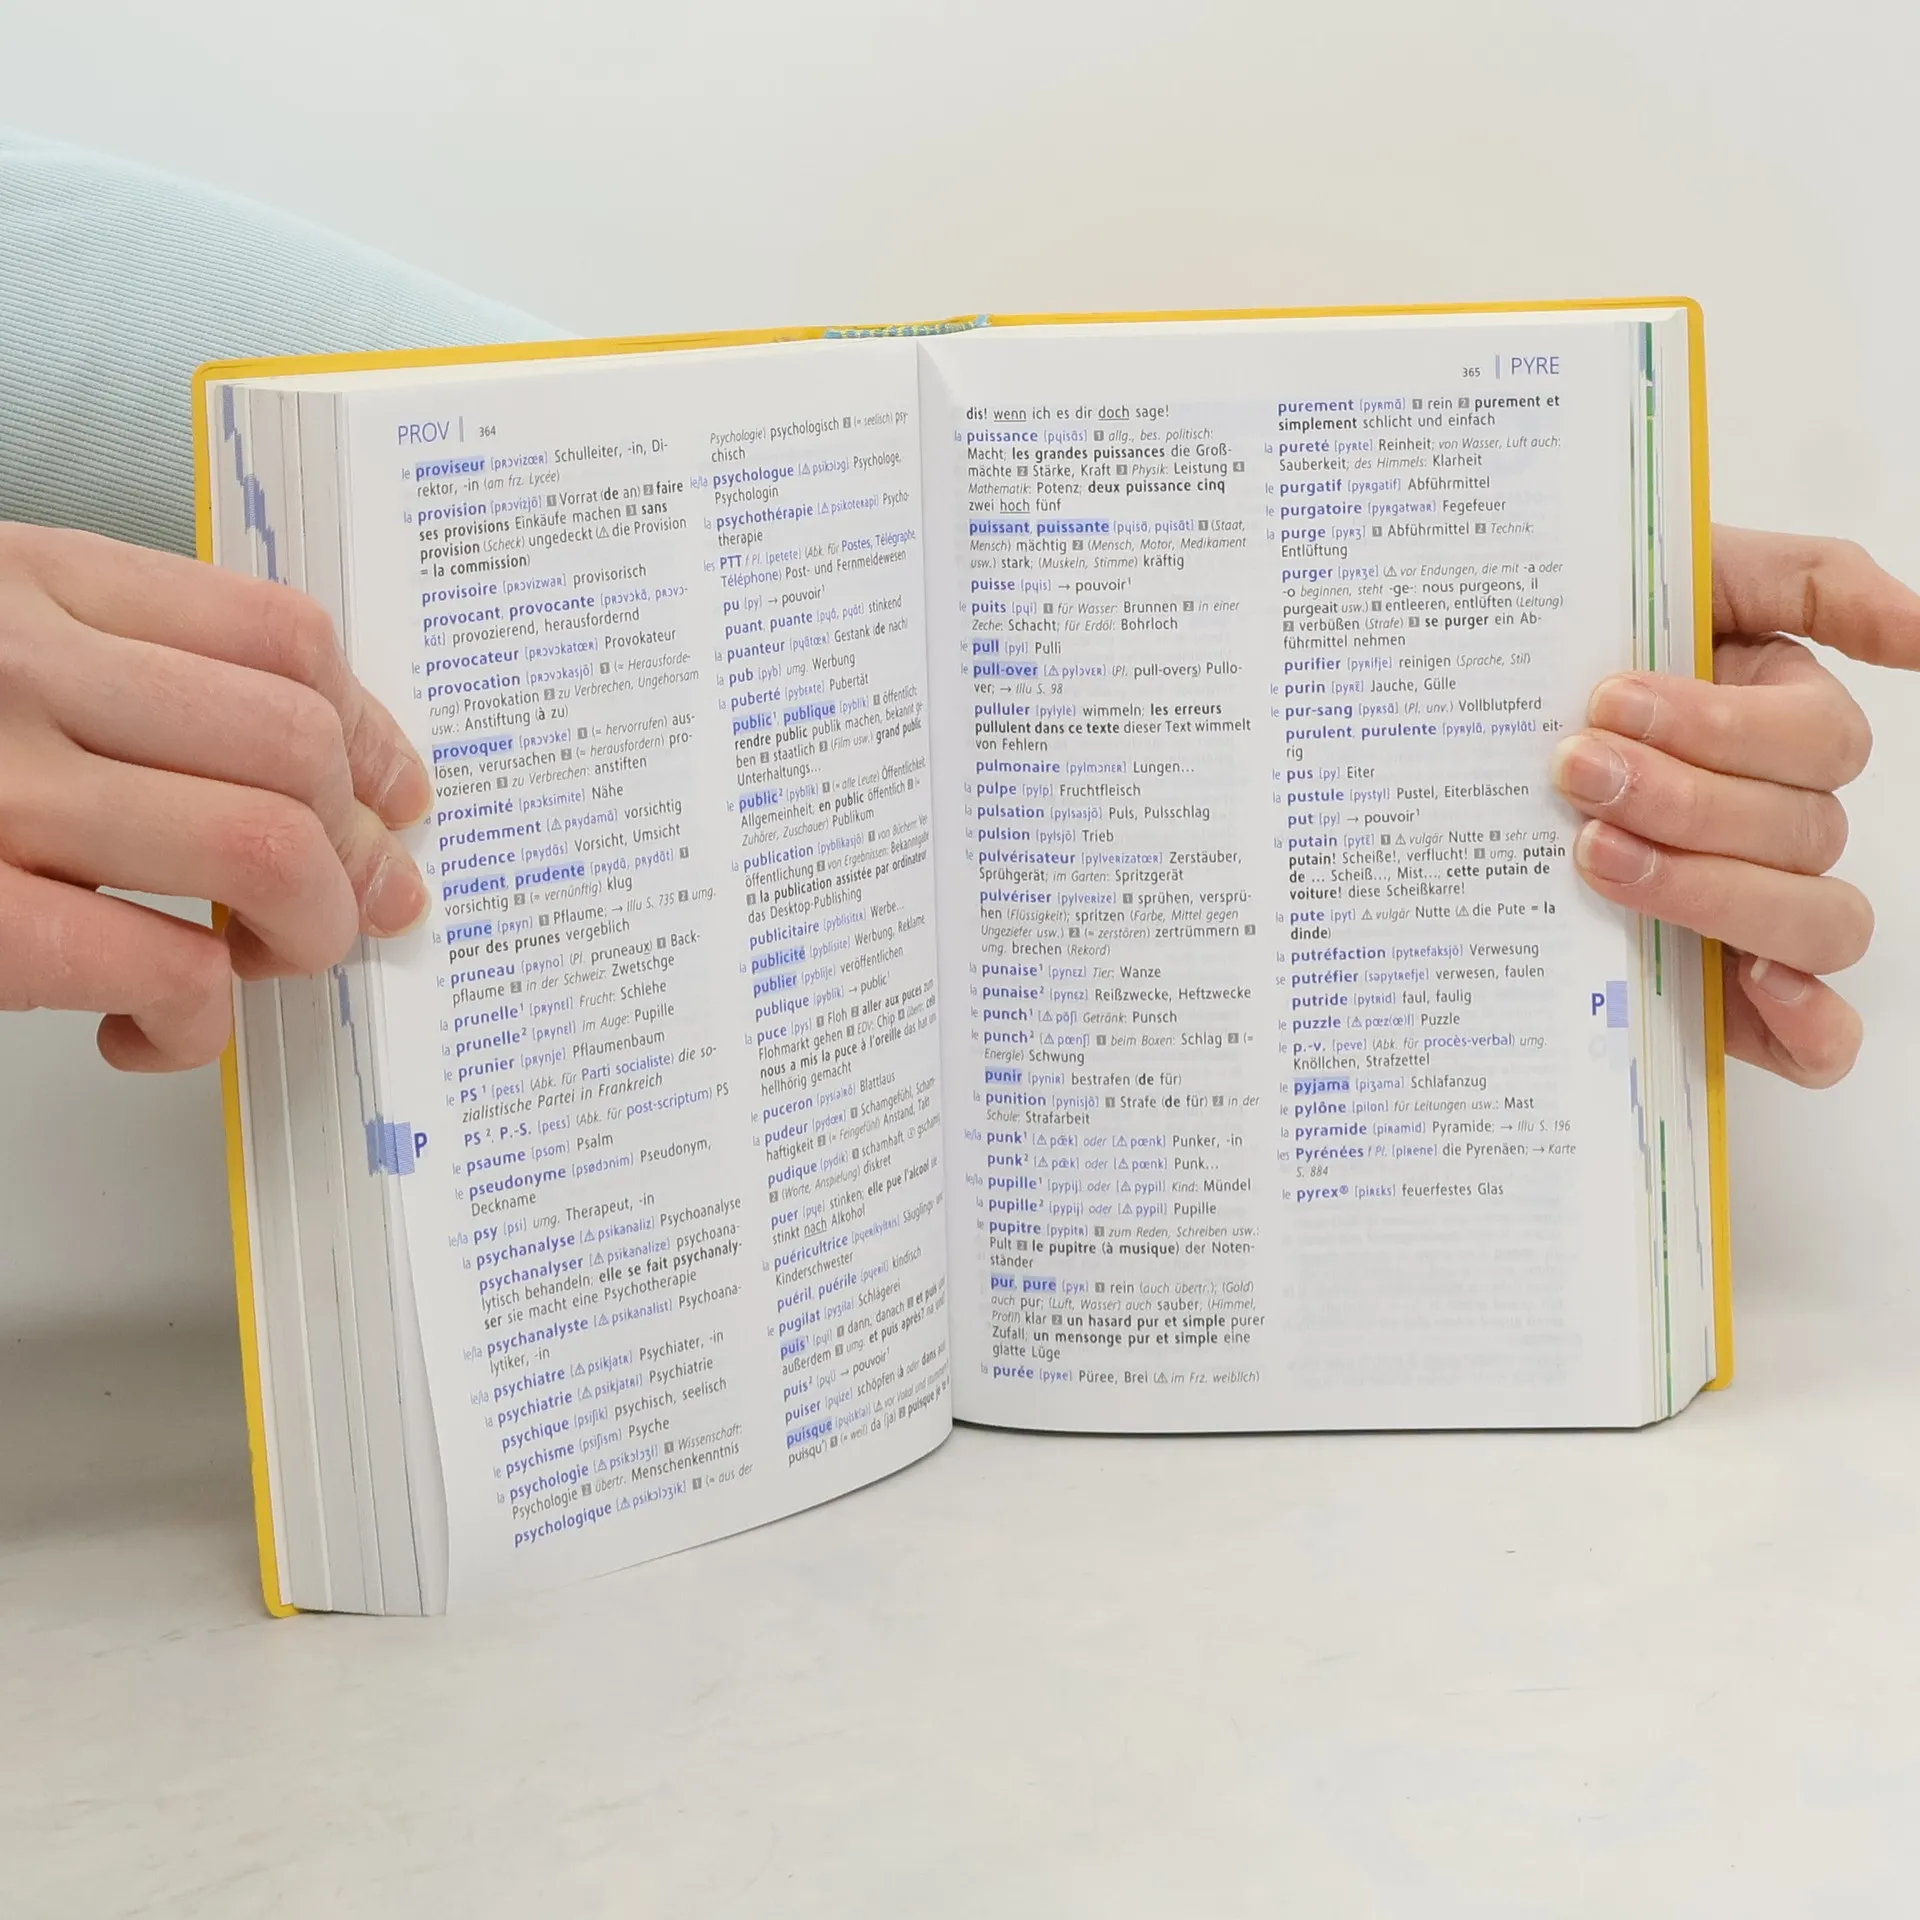 PROV | 364
le proviseur [pʀɔvizœʀ] Schulleiter, -in, Di-
rektor, -in (am frz. Lycée)
la provision [pʀɔvizjõ] 1 Vorrat (de an) 2 faire
ses provisions Einkäufe machen 3 sans
provision (Scheck) ungedeckt (⚠ die Provision
= la commission)
provisoire [pʀɔvizwaʀ] provisorisch
provocant, provocante [pʀɔvɔkɑ̃, pʀɔvɔ-
kɑ̃t] provozierend, herausfordernd
le provocateur [pʀɔvɔkatœʀ] Provokateur
la provocation [pʀɔvɔkasjõ] 1 (= Herausforde-
rung) Provokation 2 zu Verbrechen, Ungehorsam
usw.: Anstiftung (à zu)
provoquer [pʀɔvɔke] 1 (= hervorrufen) aus-
lösen, verursachen 2 (= herausfordern) pro-
vozieren 3 zu Verbrechen: anstiften
proximité [pʀɔksimite] Nähe
prudemment [⚠ pʀydamɑ̃] vorsichtig
la prudence [pʀydɑ̃s] Vorsicht, Umsicht
prudent, prudente [pʀydɑ̃, pʀydɑ̃t] 1
vorsichtig 2 (= vernünftig) klug
la prune [pʀyn] 1 Pflaume; → Illu S. 735 2 umg.
pour des prunes vergeblich
le pruneau [pʀyno] (Pl. pruneaux) 1 Back-
pflaume 2 in der Schweiz: Zwetschge
la prunelle¹ [pʀynɛl] Frucht: Schlehe
la prunelle² [pʀynɛl] im Auge: Pupille
le prunier [pʀynje] Pflaumenbaum
le PS ¹ [peɛs] (Abk. für Parti socialiste) die so-
zialistische Partei in Frankreich
PS ², P.-S. [peɛs] (Abk. für post-scriptum) PS
le psaume [psom] Psalm
le pseudonyme [psødɔnim] Pseudonym,
Deckname
le/la psy [psi] umg. Therapeut, -in
la psychanalyse [⚠ psikanaliz] Psychoanalyse
psychanalyser [⚠ psikanalize] psychoana-
lytisch behandeln; elle se fait psychanaly-
ser sie macht eine Psychotherapie
le/la psychanalyste [⚠ psikanalist] Psychoana-
lytiker, -in
le/la psychiatre [⚠ psikjatʀ] Psychiater, -in
la psychiatrie [⚠ psikjatʀi] Psychiatrie
psychique [psiʃik] psychisch, seelisch
le psychisme [psiʃism] Psyche
la psychologie [⚠ psikɔlɔʒi] 1 Wissenschaft:
Psychologie 2 übertr. Menschenkenntnis
psychologique [⚠ psikɔlɔʒik] 1 (= aus der
Psychologie) psychologisch 2 (= seelisch) psy-
chisch
le/la psychologue [⚠ psikɔlɔg] Psychologe,
Psychologin
la psychothérapie [⚠ psikoteʀapi] Psycho-
therapie
les PTT f Pl. [petete] (Abk. für Postes, Télégraphe,
Téléphone) Post- und Fernmeldewesen
pu [py] → pouvoir¹
puant, puante [pyɑ̃, pyɑ̃t] stinkend
la puanteur [pyɑ̃tœʀ] Gestank (de nach)
la pub [pyb] umg. Werbung
la puberté [pybɛʀte] Pubertät
public¹, publique [pyblik] 1 öffentlich;
rendre public publik machen, bekannt ge-
ben 2 staatlich 3 (Film usw.) grand public
Unterhaltungs...
le public² [pyblik] 1 (= alle Leute) Öffentlichkeit,
Allgemeinheit; en public öffentlich 2 (=
Zuhörer, Zuschauer) Publikum
la publication [pyblikasjõ] 1 von Büchern: Ver-
öffentlichung 2 von Ergebnissen: Bekanntgabe
3 la publication assistée par ordinateur
das Desktop-Publishing
publicitaire [pyblisitɛʀ] Werbe...
la publicité [pyblisite] Werbung, Reklame
publier [pyblije] veröffentlichen
publique [pyblik] → public¹
la puce [pys] 1 Floh 2 aller aux puces zum
Flohmarkt gehen 3 EDV: Chip 4 übertr. cela
nous a mis la puce à l'oreille das hat uns
hellhörig gemacht
le puceron [pysʀõ] Blattlaus
la pudeur [pydœʀ] 1 Schamgefühl, Scham-
haftigkeit 2 (= Feingefühl) Anstand, Takt
pudique [pydik] 1 schamhaft,
2 (Worte, Anspielung) diskret
puer [pɥe] stinken; elle pue l'alcool sie
stinkt nach Alkohol
la puéricultrice [pɥeʀikyltʀis] Säuglings- und
Kinderschwester
puéril, puérile [pɥeʀil] kindisch
le pugilat [pyʒila] Schlägerei
puis¹ [pɥi] 1 dann, danach 2 et puis und
außerdem 3 umg. et puis après? na und?
puis² [pɥi] → pouvoir¹
puiser [pɥize] schöpfen (à oder dans aus)
puisque [pɥisk(ə)] (⚠ vor Vokal und stummem h
puisqu') 1 (= weil) da (ja) 2 puisque je te le
P
365 | PYRE
dis! wenn ich es dir doch sage!
la puissance [pɥisɑ̃s] 1 allg., bes. politisch:
Macht; les grandes puissances die Groß-
mächte 2 Stärke, Kraft 3 Physik: Leistung 4
Mathematik: Potenz; deux puissance cinq
zwei hoch fünf
puissant, puissante [pɥisɑ̃, pɥisɑ̃t] 1 (Staat,
Mensch) mächtig 2 (Mensch, Motor, Medikament
usw.) stark; (Muskeln, Stimme) kräftig
puisse [pɥis] → pouvoir¹
le puits [pɥi] 1 für Wasser: Brunnen 2 in einer
Zeche: Schacht; für Erdöl: Bohrloch
le pull [pyl] Pulli
le pull-over [⚠ pylɔvɛʀ] (Pl. pull-overs) Pullo-
ver; → Illu S. 98
pulluler [pylyle] wimmeln; les erreurs
pullulent dans ce texte dieser Text wimmelt
von Fehlern
pulmonaire [pylmɔnɛʀ] Lungen...
la pulpe [pylp] Fruchtfleisch
la pulsation [pylsasjõ] Puls, Pulsschlag
la pulsion [pylsjõ] Trieb
le pulvérisateur [pylveʀizatœʀ] Zerstäuber,
Sprühgerät; im Garten: Spritzgerät
pulvériser [pylveʀize] 1 sprühen, versprü-
hen (Flüssigkeit); spritzen (Farbe, Mittel gegen
Ungeziefer usw.) 2 (= zerstören) zertrümmern 3
umg. brechen (Rekord)
la punaise¹ [pynɛz] Tier: Wanze
la punaise² [pynɛz] Reißzwecke, Heftzwecke
le punch¹ [⚠ põʃ] Getränk: Punsch
le punch² [⚠ pœnʃ] 1 beim Boxen: Schlag 2 (=
Energie) Schwung
punir [pyniʀ] bestrafen (de für)
la punition [pynisjõ] 1 Strafe (de für) 2 in der
Schule: Strafarbeit
le/la punk¹ [⚠ pœ̃k] oder [⚠ pœnk] Punker, -in
punk² [⚠ pœ̃k] oder [⚠ pœnk] Punk...
le/la pupille¹ [pypij] oder [⚠ pypil] Kind: Mündel
la pupille² [pypij] oder [⚠ pypil] Pupille
le pupitre [pypitʀ] 1 zum Reden, Schreiben usw.:
Pult 2 le pupitre (à musique) der Noten-
ständer
pur, pure [pyʀ] 1 rein (auch übertr.); (Gold)
auch pur; (Luft, Wasser) auch sauber; (Himmel,
Profil) klar 2 un hasard pur et simple purer
Zufall; un mensonge pur et simple eine
glatte Lüge
la purée [pyʀe] Püree, Brei (⚠ im Frz. weiblich)
purement [pyʀmɑ̃] 1 rein 2 purement et
simplement schlicht und einfach
la pureté [pyʀte] Reinheit; von Wasser, Luft auch:
Sauberkeit; des Himmels: Klarheit
le purgatif [pyʀgatif] Abführmittel
le purgatoire [pyʀgatwaʀ] Fegefeuer
la purge [pyʀʒ] 1 Abführmittel 2 Technik:
Entlüftung
purger [pyʀʒe] (⚠ vor Endungen, die mit -a oder
-o beginnen, steht -ge-: nous purgeons, il
purgeait usw.) 1 entleeren, entlüften (Leitung)
2 verbüßen (Strafe) 3 se purger ein Ab-
führmittel nehmen
purifier [pyʀifje] reinigen (Sprache, Stil)
le purin [pyʀɛ̃] Jauche, Gülle
le pur-sang [pyʀsɑ̃] (Pl. unv.) Vollblutpferd
purulent, purulente [pyʀylɑ̃, pyʀylɑ̃t] eit-
rig
le pus [py] Eiter
la pustule [pystyl] Pustel, Eiterbläschen
put [py] → pouvoir¹
la putain [pytɛ̃] 1 ⚠ vulgär Nutte 2 sehr umg.
putain! Scheiße!, verflucht! 3 umg. putain
de ... Scheiß..., Mist...; cette putain de
voiture! diese Scheißkarre!
la pute [pyt] ⚠ vulgär Nutte (⚠ die Pute = la
dinde)
la putréfaction [pytʀefaksjõ] Verwesung
se putréfier [səpytʀefje] verwesen, faulen
putride [pytʀid] faul, faulig
le puzzle [⚠ pœz(œ)l] Puzzle
le p.-v. [peve] (Abk. für procès-verbal) umg.
Knöllchen, Strafzettel
le pyjama [piʒama] Schlafanzug
le pylône [pilon] für Leitungen usw.: Mast
la pyramide [piʀamid] Pyramide; → Illu S. 196
les Pyrénées f Pl. [piʀene] die Pyrenäen; → Karte
S. 884
le pyrex® [piʀɛks] feuerfestes Glas
P